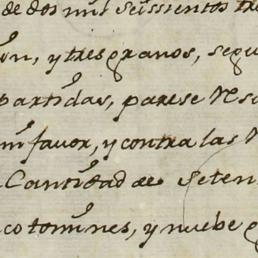 de dos mil seissientos tre
ón, y tres granos, segu
partidas, parese
mi favor, y contra las
Cantidad de seten
co tomines, y nuebe